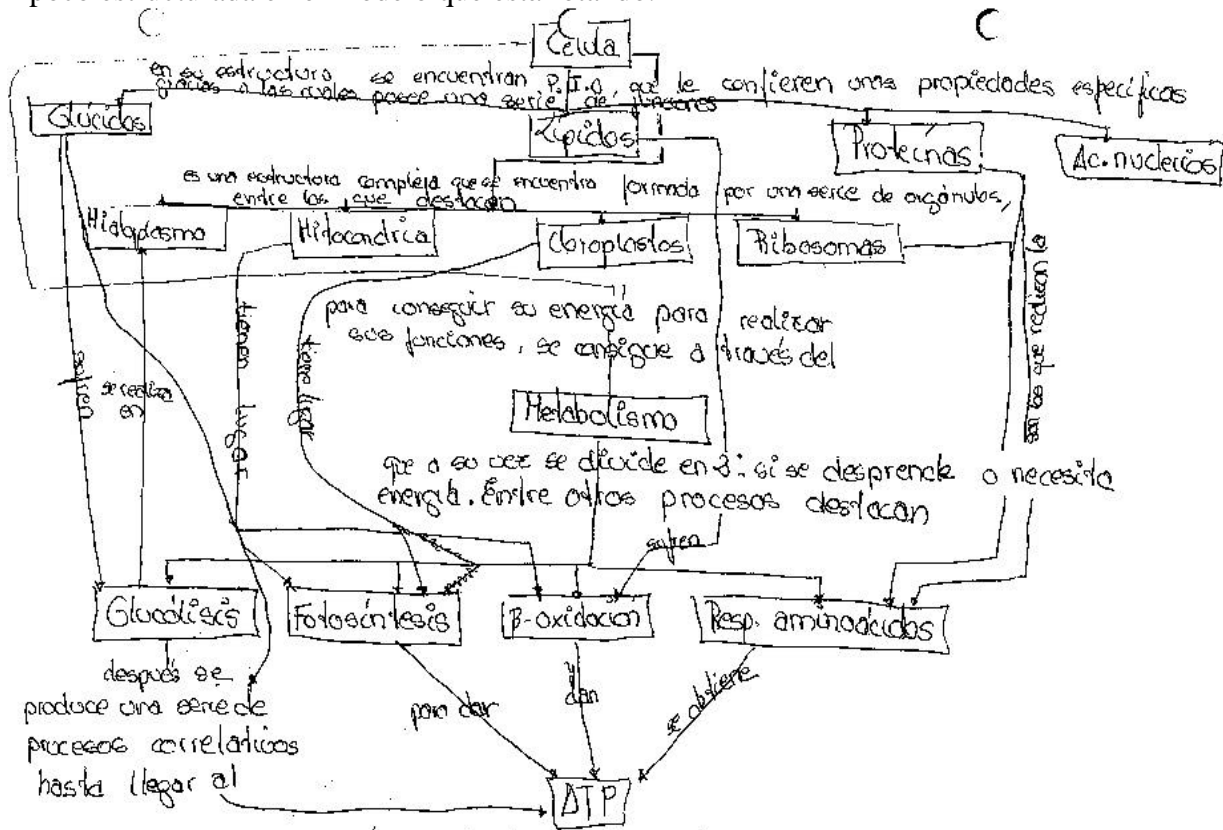 Célula
en su estructura se encuentran P.I.O, que le confieren unas propiedades específicas
gracias a las cuales posee una serie de funciones
Glúcidos
Lípidos
Proteínas
Ac. nucleicos
es una estructura compleja que se encuentra formada por una serie de orgánulos,
entre los que destacan
Hialoplasma
Mitocondria
Cloroplastos
Ribosomas
para conseguir su energía para realizar
sus funciones, se consigue a través del
sufren
se realiza
en
tienen lugar
tiene lugar
son los que realizan la
Metabolismo
que a su vez se divide en 2: si se desprende o necesita
energía. Entre otros procesos destacan
sufren
Glucólisis
Fotosíntesis
β-oxidación
Resp. aminoácidos
después se
produce una serie de
procesos correlativos
hasta llegar al
para dar
y
dan
se obtiene
ATP